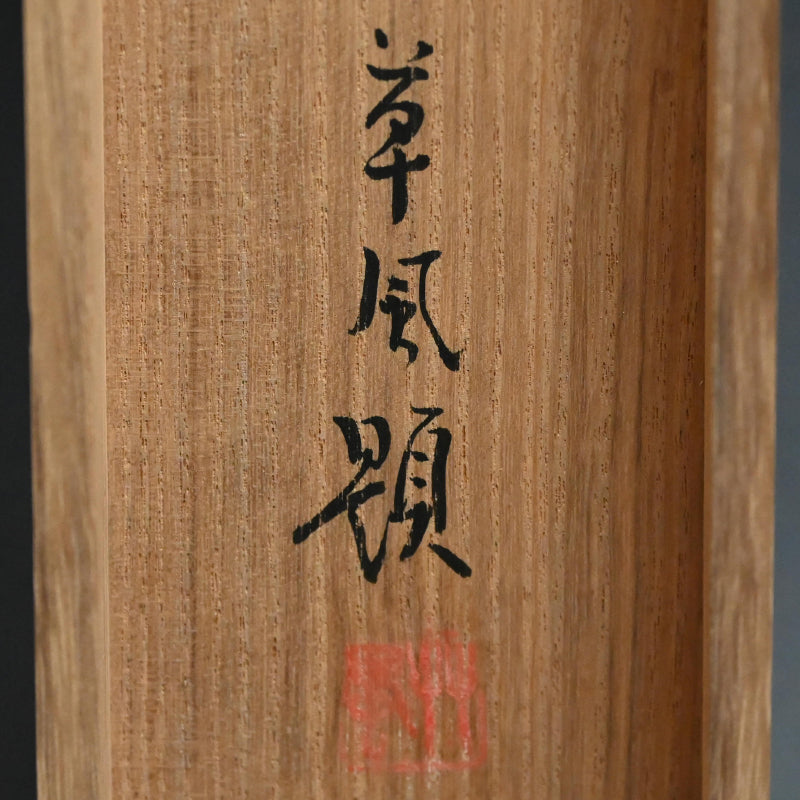 草風題